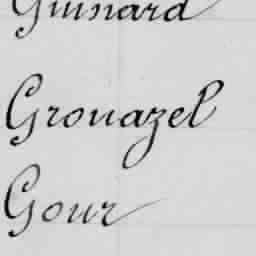 Guinard
Grouazel
Gour